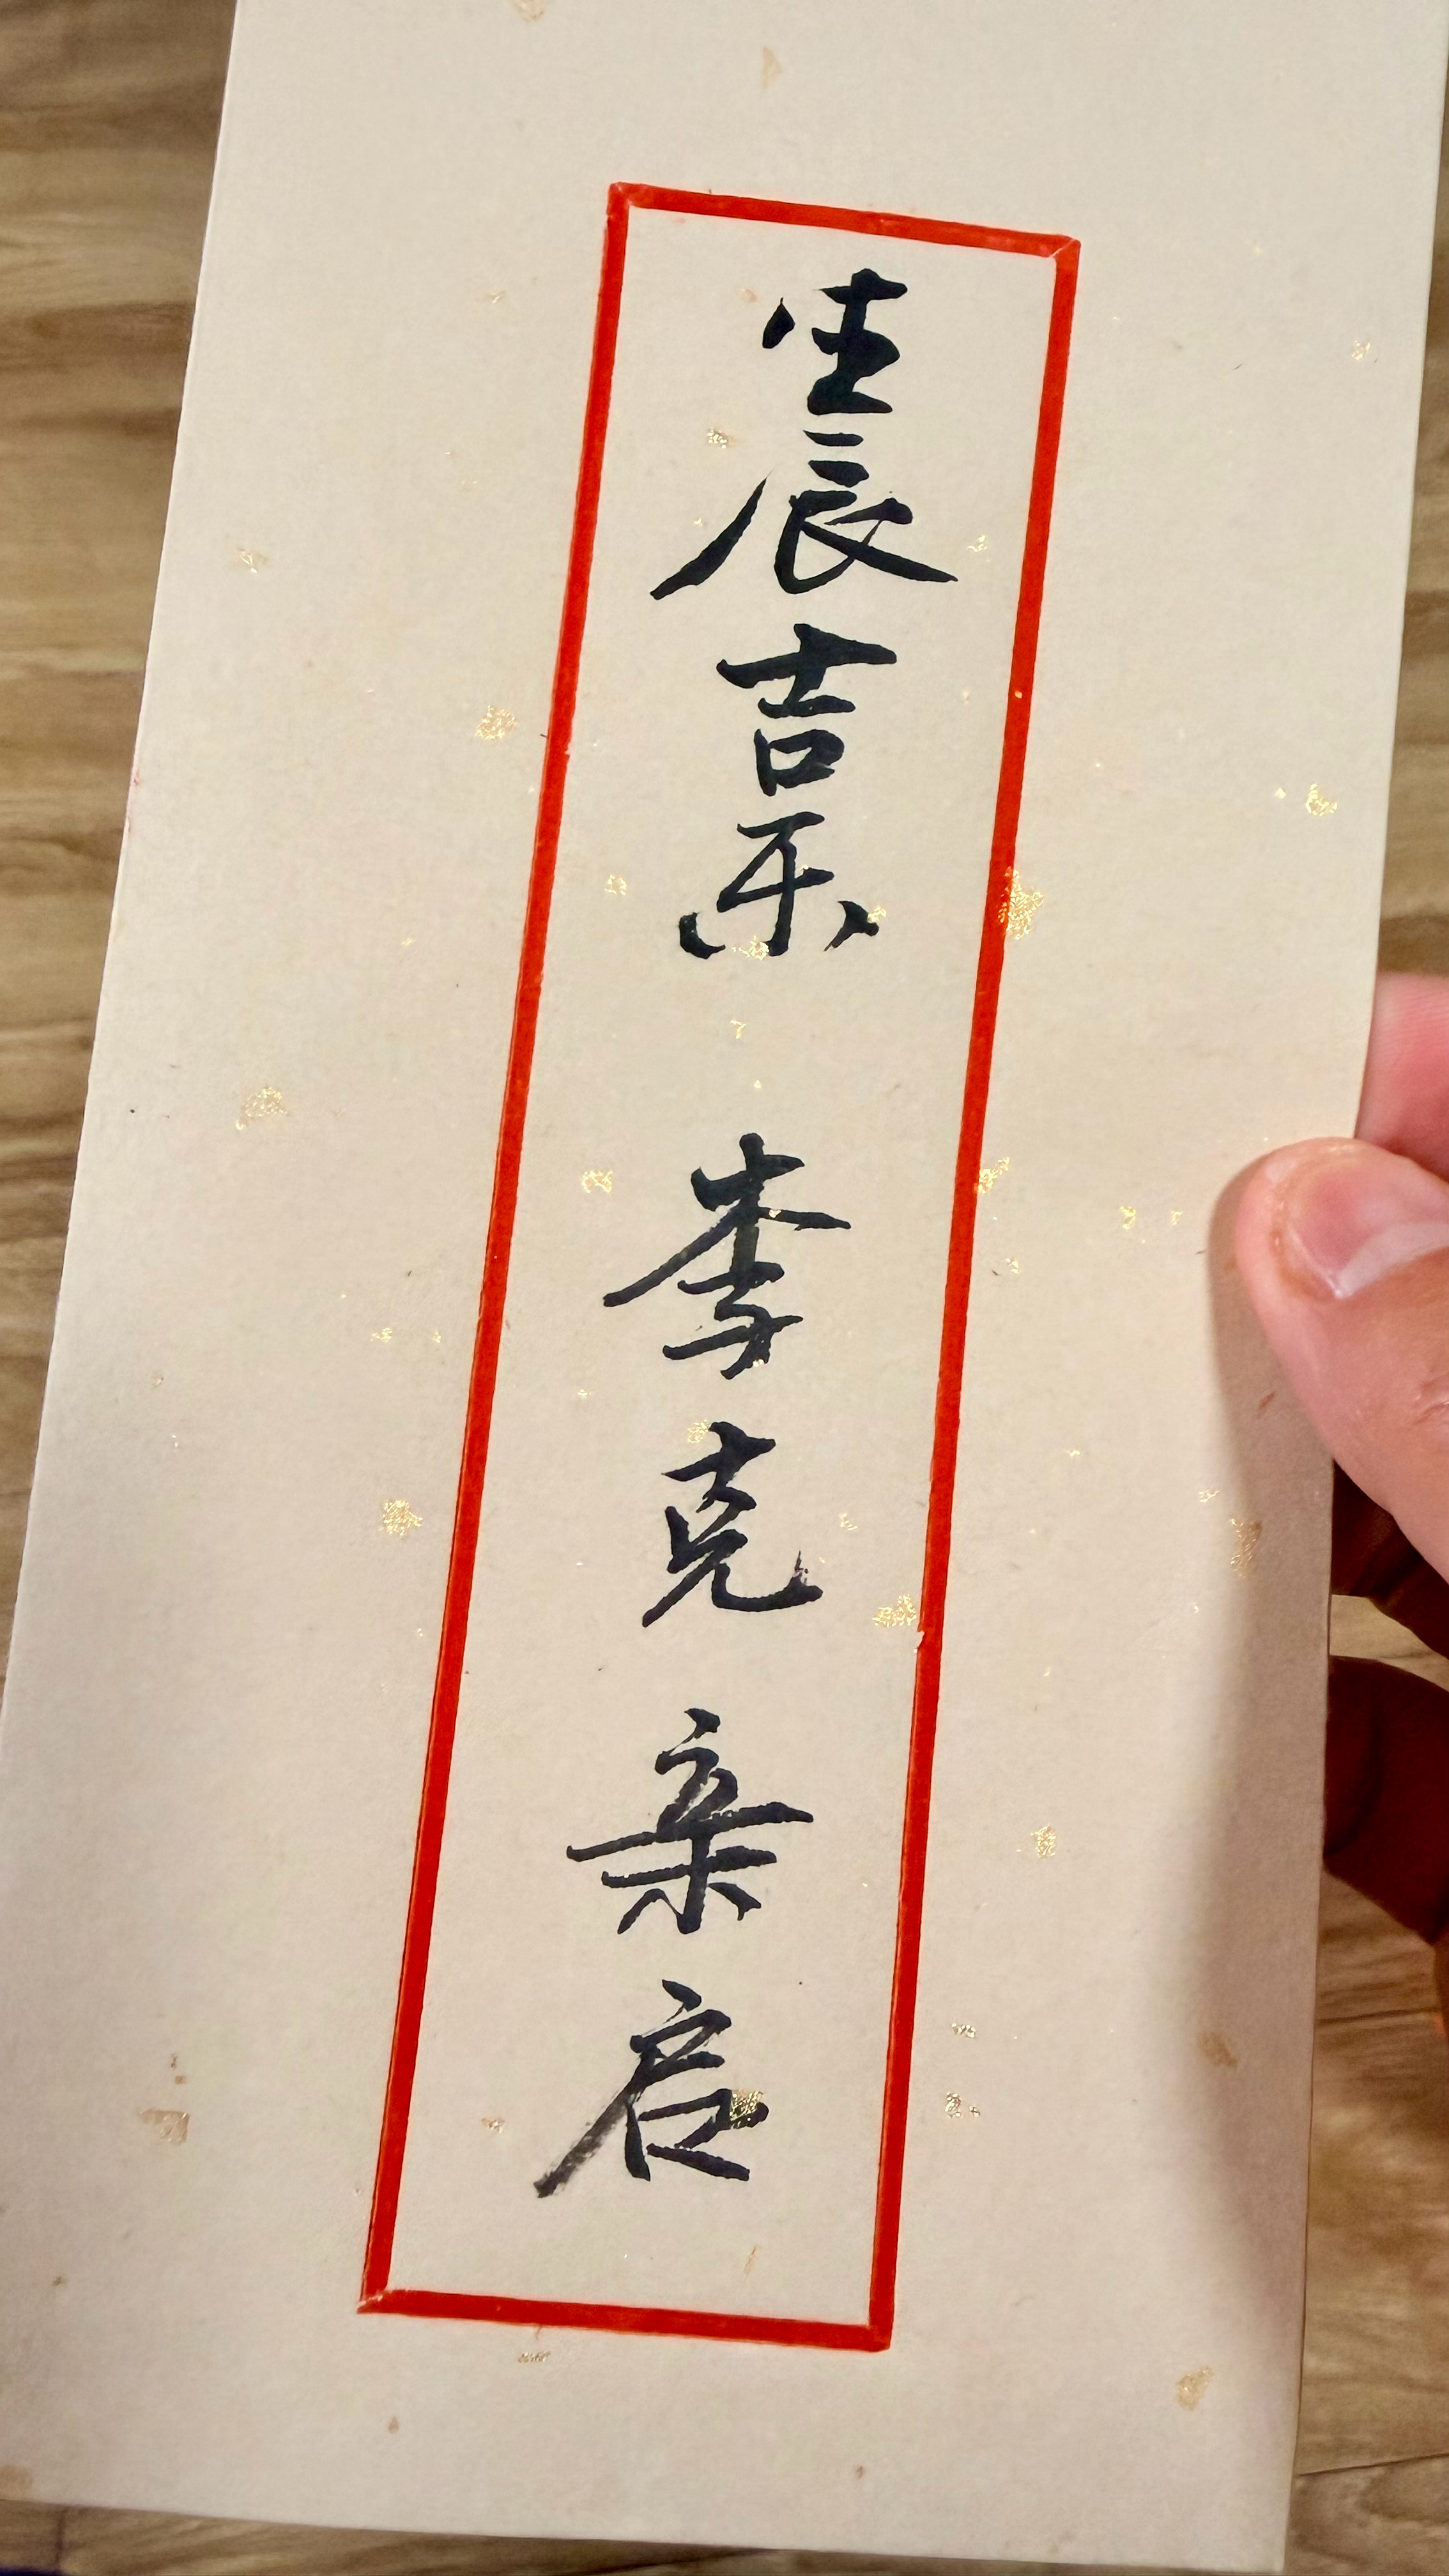 生辰吉乐 李克 亲启